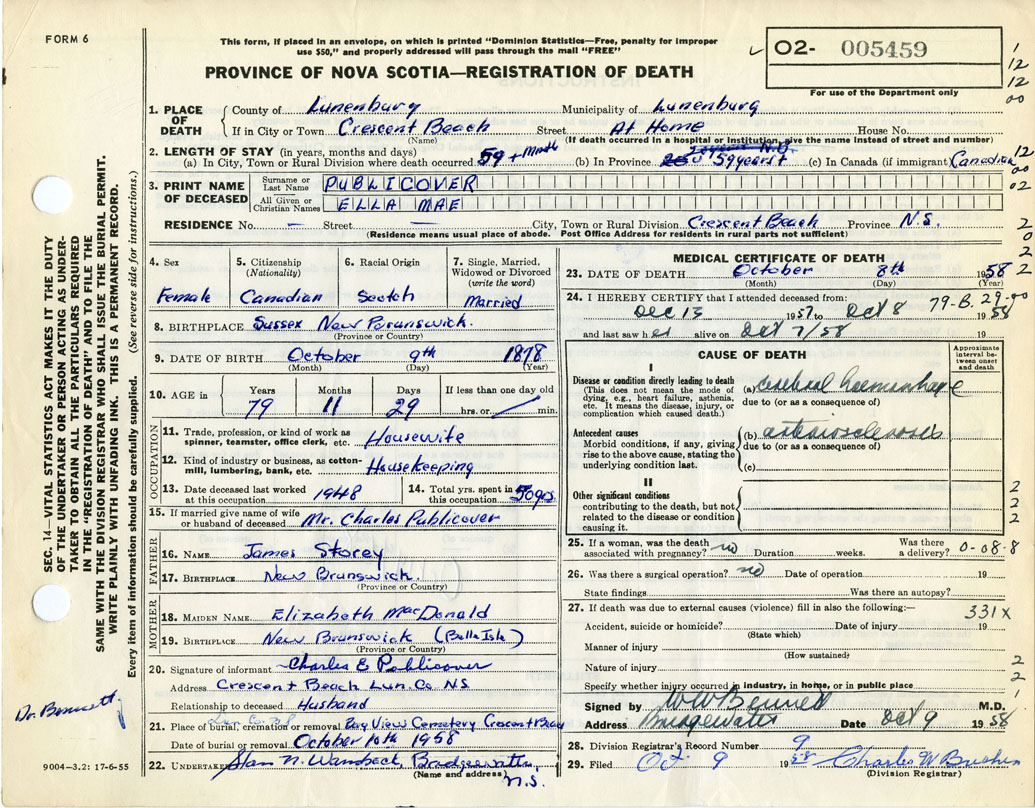 FORM 6
This form, if placed in an envelope, on which is printed "Dominion Statistics—Free, penalty for improper
use $50," and properly addressed will pass through the mail "FREE"
PROVINCE OF NOVA SCOTIA—REGISTRATION OF DEATH
02- 005459
For use of the Department only
1. PLACE OF DEATH County of Lunenburg Municipality of Lunenburg
If in City or Town Crescent Beach Street At Home House No.
(Name) (If death occurred in a hospital or institution, give the name instead of street and number)
2. LENGTH OF STAY (in years, months and days)
(a) In City, Town or Rural Division where death occurred 59 + Month (b) In Province 59 years (c) In Canada (if immigrant) Canadian
3. PRINT NAME OF DECEASED Surname or Last Name PUBLICOVER
All Given or Christian Names ELLA MAE
RESIDENCE No. — Street — City, Town or Rural Division Crescent Beach Province N.S.
(Residence means usual place of abode. Post Office Address for residents in rural parts not sufficient)
4. Sex Female
5. Citizenship (Nationality) Canadian
6. Racial Origin Scotch
7. Single, Married, Widowed or Divorced (write the word) Married
8. BIRTHPLACE Sussex New Brunswick.
(Province or Country)
9. DATE OF BIRTH October 9th 1878
(Month) (Day) (Year)
10. AGE in Years 79 Months 11 Days 29 If less than one day old hrs. or min.
OCCUPATION
11. Trade, profession, or kind of work as
spinner, teamster, office clerk, etc. Housewife
12. Kind of industry or business, as cotton-
mill, lumbering, bank, etc. Housekeeping
13. Date deceased last worked at this occupation 1948
14. Total yrs. spent in this occupation 50 yrs.
15. If married give name of wife
or husband of deceased Mr. Charles Publicover
FATHER
16. NAME James Storey
17. BIRTHPLACE New Brunswick.
(Province or Country)
MOTHER
18. MAIDEN NAME Elizabeth MacDonald
19. BIRTHPLACE New Brunswick (Belle Isle)
(Province or Country)
20. Signature of informant Charles E Publicover
Address Crescent Beach Lun. Co. N.S
Relationship to deceased Husband
21. Place of burial, cremation or removal Bay View Cemetery Crescent Beach
Date of burial or removal October 10th 1958
22. UNDERTAKER N. Bridgewater, N.S.
(Name and address)
MEDICAL CERTIFICATE OF DEATH
23. DATE OF DEATH October 8th 1958
(Month) (Day) (Year)
24. I HEREBY CERTIFY that I attended deceased from: 79-B. 29-00
Dec 13 1957 to Oct 8 1958
and last saw her alive on Oct 7/58 19
CAUSE OF DEATH
Approximate interval between onset and death
I
Disease or condition directly leading to death
(This does not mean the mode of
dying, e.g., heart failure, asthenia,
etc. It means the disease, injury, or
complication which caused death.)
(a) cerebral haemorrhage
due to (or as a consequence of)
Antecedent causes
Morbid conditions, if any, giving
rise to the above cause, stating the
underlying condition last.
(b) arteriosclerosis
due to (or as a consequence of)
(c)
II
Other significant conditions
contributing to the death, but not
related to the disease or condition
causing it.
25. If a woman, was the death
associated with pregnancy? no Duration weeks. Was there a delivery? 0-08-8
26. Was there a surgical operation? no Date of operation 19
State findings Was there an autopsy?
27. If death was due to external causes (violence) fill in also the following:— 331X
Accident, suicide or homicide? Date of injury 19
(State which)
Manner of injury
(How sustained)
Nature of injury
Specify whether injury occurred in industry, in home, or in public place
Signed by W W Bennett M.D.
Address Bridgewater Date Oct 9 1958
28. Division Registrar's Record Number 9
29. Filed Oct. 9 1958 Charles W
(Division Registrar)
SEC. 14—VITAL STATISTICS ACT MAKES IT THE DUTY
OF THE UNDERTAKER OR PERSON ACTING AS UNDER-
TAKER TO OBTAIN ALL THE PARTICULARS REQUIRED
IN THE "REGISTRATION OF DEATH" AND TO FILE THE
SAME WITH THE DIVISION REGISTRAR WHO SHALL ISSUE THE BURIAL PERMIT.
WRITE PLAINLY WITH UNFADING INK. THIS IS A PERMANENT RECORD.
Every item of information should be carefully supplied. (See reverse side for instructions.)
Dr. Bennett
9004—3.2: 17-6-55
1
12
12
00
12
00
02
2
0
2
2
2
2
2
2
2
1